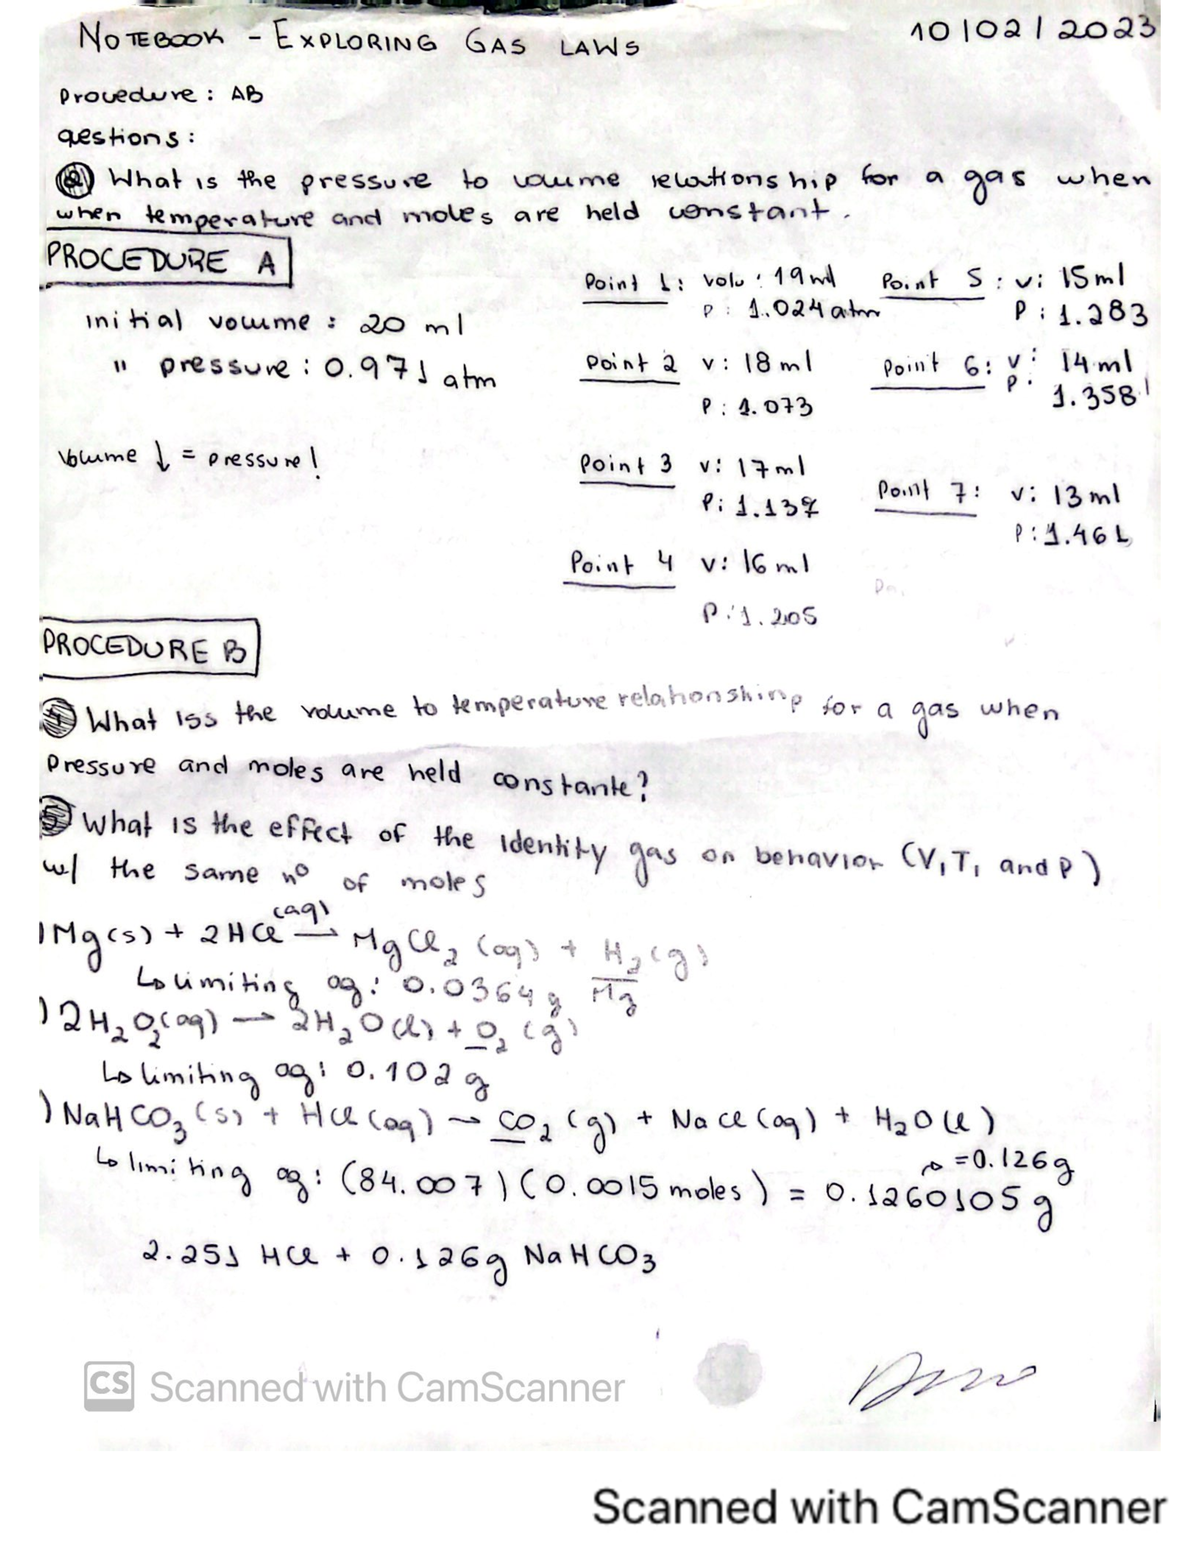 NOTEBOOK - EXPLORING GAS LAWS 10/02/2023
Procedure: AB
qestions:
② What is the pressure to volume relationship for a gas when
when temperature and moles are held constant.
PROCEDURE A
initial volume: 20 ml
" pressure: 0.971 atm
Volume ↓ = pressure!
Point 1: volu: 19 ml
P: 1.024 atm
Point 2 v: 18 ml
P: 1.073
Point 3 v: 17 ml
P: 1.137
Point 4 v: 16 ml
P: 1.205
Point 5: v: 15 ml
P: 1.283
Point 6: v: 14 ml
P: 1.358
Point 7: v: 13 ml
P: 1.461
PROCEDURE B
④ What iss the volume to temperature relationship for a gas when
pressure and moles are held constante?
⑤ What is the effect of the identity gas on behavior (V, T, and P)
w/ the same nº of moles
) Mg(s) + 2HCl (aq) → MgCl₂ (aq) + H₂(g)
↳ limiting ag: 0.0364 g Mg
) 2H₂O₂(aq) → 2H₂O(l) + O₂ (g)
↳ limiting ag: 0.102 g
) NaHCO₃(s) + HCl (aq) → CO₂ (g) + NaCl (aq) + H₂O (l)
↳ limiting ag: (84.007) (0.0015 moles) = 0.1260105 g
= 0.126g
2.251 HCl + 0.126g NaHCO₃
CS Scanned with CamScanner
Scanned with CamScanner